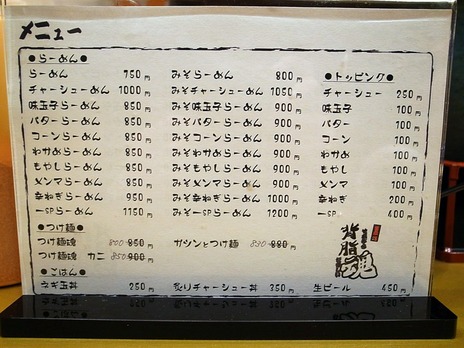 メニュー
●らーめん●
らーめん 750円 みそらーめん 800円 ●トッピング●
チャーシューめん 1000円 みそチャーシューめん 1050円 チャーシュー 250円
味玉子らーめん 850円 みそ味玉子らーめん 900円 味玉子 100円
バターらーめん 850円 みそバターらーめん 900円 バター 100円
コーンらーめん 850円 みそコーンらーめん 900円 コーン 100円
わかめらーめん 850円 みそわかめらーめん 900円 わかめ 100円
もやしらーめん 850円 みそもやしらーめん 900円 もやし 100円
メンマらーめん 850円 みそメンマらーめん 900円 メンマ 100円
辛ねぎらーめん 950円 みそ辛ねぎらーめん 1000円 辛ねぎ 200円
一SPらーめん 1150円 みそ一SPらーめん 1200円 一SP 400円
●つけ麺●
つけ麺魂 800 850円 ガツンとつけ麺 830 880円
つけ麺魂 カニ 850 900円
背脂
●ごはん●
ネギ玉丼 250円 炙りチャーシュー丼 350円 生ビール 450円